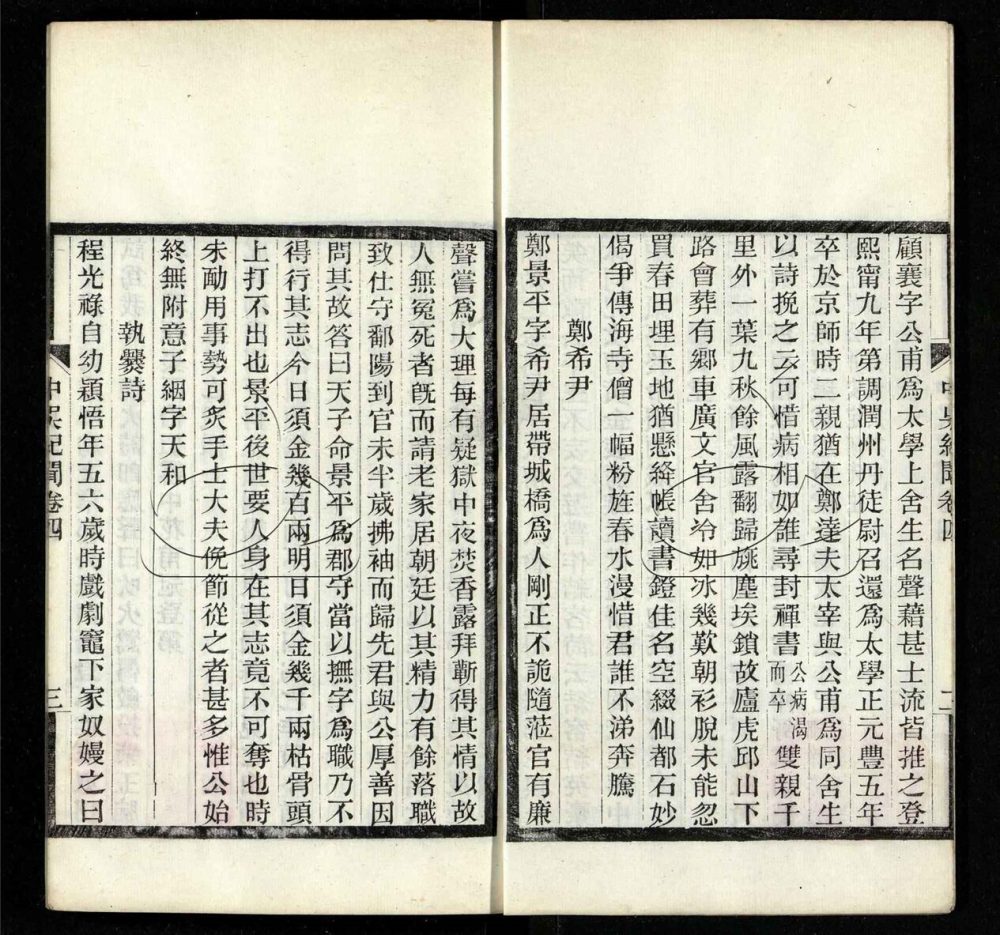 顧襄字公甫爲太學上舍生名聲藉甚士流皆推之登
熙甯九年第調潤州丹徒尉召還爲太學正元豐五年
卒於京師時二親猶在鄭達夫太宰與公甫爲同舍生
以詩挽之云可惜病相如誰尋封禪書公病渴而卒雙親千
里外一葉九秋餘風露翻歸旐塵埃鎖故廬虎邱山下
路會葬有鄉車廣文官舍冷如冰幾歎朝衫脫未能忍
買春田埋玉地猶懸絳帳讀書鐙佳名空綴仙都石妙
偈爭傳海寺僧一幅粉旌春水漫惜君誰不涕奔騰
鄭希尹
鄭景平字希尹居帶城橋爲人剛正不詭隨蒞官有廉
中吳紀聞卷四
二
聲嘗爲大理每有疑獄中夜焚香露拜蘄得其情以故
人無冤死者旣而請老家居朝廷以其精力有餘落職
致仕守鄱陽到官未半歲拂袖而歸先君與公厚善因
問其故答曰天子命景平爲郡守當以撫字爲職乃不
得行其志今日須金幾百兩明日須金幾千兩枯骨頭
上打不出也景平後世要人身在其志竟不可奪也時
朱勔用事勢可炙手士大夫俛節從之者甚多惟公始
終無附意子絪字天和
執爨詩
程光祿自幼穎悟年五六歲時戲劇竈下家奴嫚之曰
中吳紀聞卷四
三